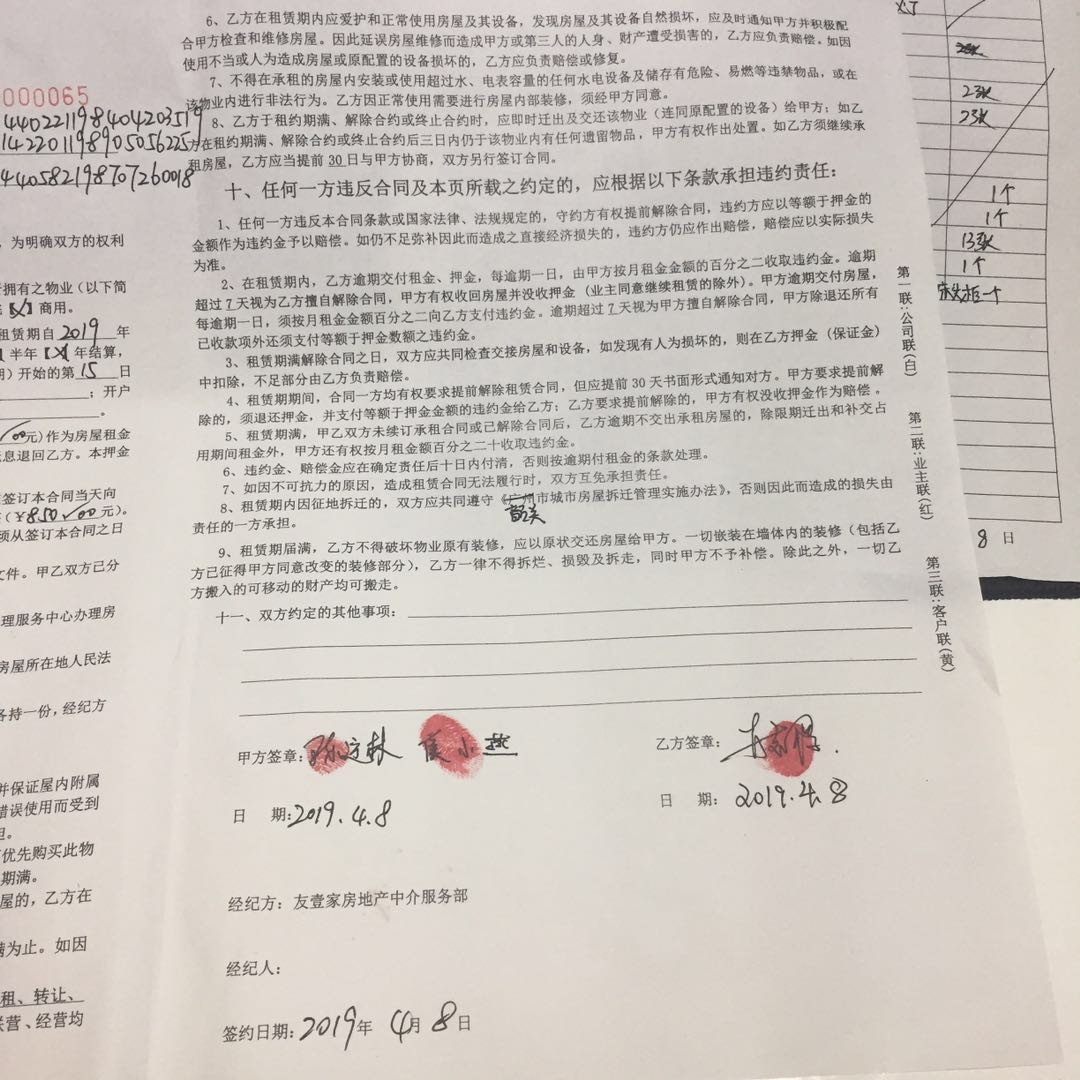 6、乙方在租赁期内应爱护和正常使用房屋及其设备，发现房屋及其设备自然损坏，应及时通知甲方并积极配
合甲方检查和维修房屋。因此延误房屋维修而造成甲方或第三人的人身、财产遭受损害的，乙方应负责赔偿。如因
使用不当或人为造成房屋或原配置的设备损坏的，乙方应负责赔偿或修复。
7、不得在承租的房屋内安装或使用超过水、电表容量的任何水电设备及储存有危险、易燃等违禁物品，或在
该物业内进行非法行为。乙方因正常使用需要进行房屋内部装修，须经甲方同意。
8、乙方于租约期满、解除合约或终止合约时，应即时迁出及交还该物业（连同原配置的设备）给甲方；如乙
方在租约期满、解除合约或终止合约后三日内仍于该物业内有任何遗留物品，甲方有权作出处置。如乙方须继续承
租房屋，乙方应当提前30日与甲方协商，双方另行签订合同。
十、任何一方违反合同及本页所载之约定的，应根据以下条款承担违约责任：
1、任何一方违反本合同条款或国家法律、法规规定的，守约方有权提前解除合同，违约方应以等额于押金的
金额作为违约金予以赔偿。如仍不足弥补因此而造成之直接经济损失的，违约方仍应作出赔偿，赔偿应以实际损失
为准。
2、在租赁期内，乙方逾期交付租金、押金，每逾期一日，由甲方按月租金金额的百分之二收取违约金。逾期
超过7天视为乙方擅自解除合同，甲方有权收回房屋并没收押金（业主同意继续租赁的除外）。甲方逾期交付房屋，
每逾期一日，须按月租金金额百分之二向乙方支付违约金。逾期超过7天视为甲方擅自解除合同，甲方除退还所有
已收款项外还须支付等额于押金数额之违约金。
3、租赁期满解除合同之日，双方应共同检查交接房屋和设备，如发现有人为损坏的，则在乙方押金（保证金）
中扣除，不足部分由乙方负责赔偿。
4、租赁期期间，合同一方均有权要求提前解除租赁合同，但应提前30天书面形式通知对方。甲方要求提前解
除的，须退还押金，并支付等额于押金金额的违约金给乙方；乙方要求提前解除的，甲方有权没收押金作为赔偿。
5、租赁期满，甲乙双方未续订承租合同或已解除合同后，乙方逾期不交出承租房屋的，除限期迁出和补交占
用期间租金外，甲方还有权按月租金额百分之二十收取违约金。
6、违约金、赔偿金应在确定责任后十日内付清，否则按逾期付租金的条款处理。
7、如因不可抗力的原因，造成租赁合同无法履行时，双方互免承担责任。
8、租赁期内因征地拆迁的，双方应共同遵守《广州市城市房屋拆迁管理实施办法》，否则因此而造成的损失由
韶关
责任的一方承担。
9、租赁期届满，乙方不得破坏物业原有装修，应以原状交还房屋给甲方。一切嵌装在墙体内的装修（包括乙
方已征得甲方同意改变的装修部分），乙方一律不得拆烂、损毁及拆走，同时甲方不予补偿。除此之外，一切乙
方搬入的可移动的财产均可搬走。
十一、双方约定的其他事项：
甲方签章：
乙方签章：
日 期：2019.4.8
日 期：2019.4.8
经纪方：友壹家房地产中介服务部
经纪人：
签约日期：2019年4月8日
第一联：公司联（白）
第二联：业主联（红）
第三联：客户联（黄）
000065
440221198404203519
142201198905056225
440582198707260018
，为明确双方的权利
拥有之物业（以下简
商用。
租赁期自2019年
半年【X】年结算，
期）开始的第15日
；开户
元）作为房屋租金
息退回乙方。本押金
签订本合同当天向
（¥850.00元）。
须从签订本合同之日
文件。甲乙双方已分
理服务中心办理房
房屋所在地人民法
各持一份，经纪方
并保证屋内附属
错误使用而受到
担。
优先购买此物
期满。
屋的，乙方在
满为止。如因
租、转让、
联营、经营均
23张
23张
1个
1个
13张
1个
8日